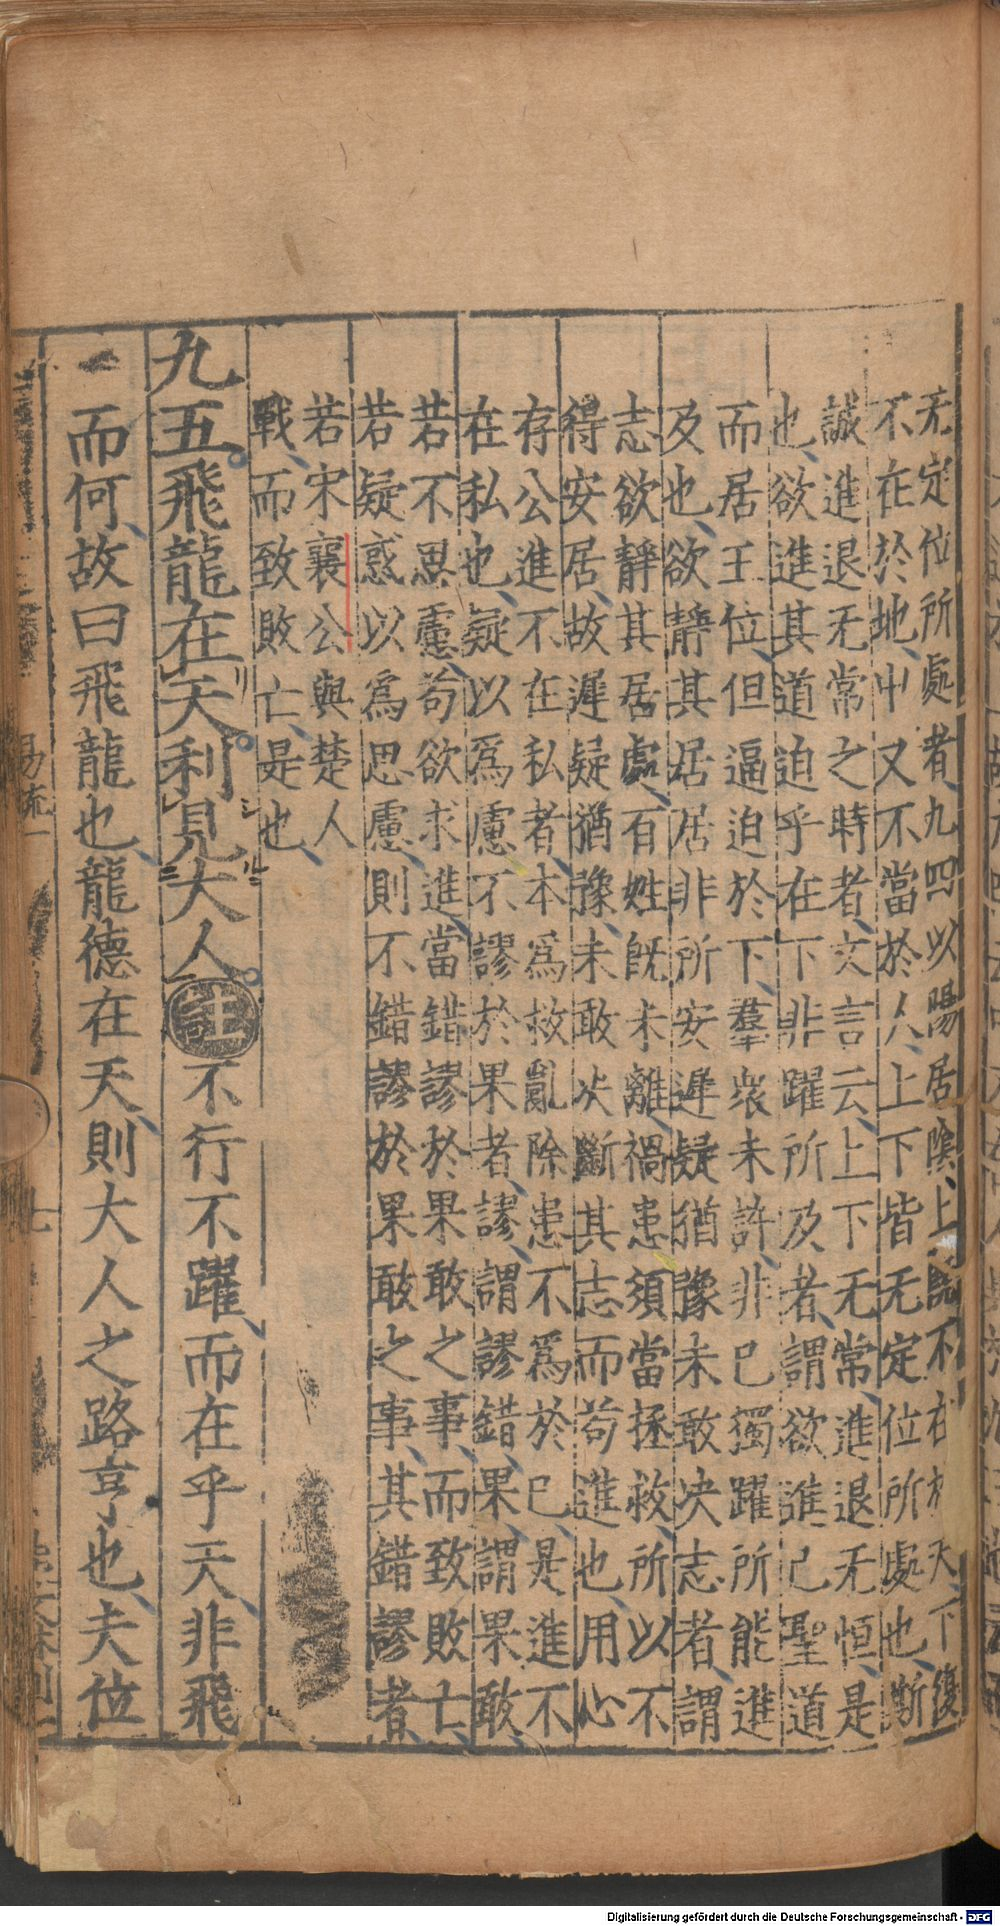 无定位所處者九四以陽居陰上既不在於天下復
不在於地中又不當於人上下皆无定位所處也斯
誠進退无常之時者文言云上下无常進退无恒是
也欲進其道迫乎在下非躍所及者謂欲進己聖道
而居王位但逼迫於下羣衆未許非己獨躍所能進
及也欲靜其居居非所安遲疑猶豫未敢决志者謂
志欲靜其居處百姓既未離禍患須當拯救所以不
得安居故遲疑猶豫未敢决斷其志而苟進也用心
存公進不在私者本爲救亂除患不爲於己是進不
在私也疑以爲慮不謬於果者謬謂謬錯果謂果敢
若不思慮苟欲求進當錯謬於果敢之事而致敗亡
若疑惑以爲思慮則不錯謬於果敢之事其錯謬者
若宋襄公與楚人
戰而致敗亡是也
九五飛龍在天利見大人註不行不躍而在乎天非飛
而何故曰飛龍也龍德在天則大人之路亨也夫位
易疏一
七
Digitalisierung gefördert durch die Deutsche Forschungsgemeinschaft - DFG